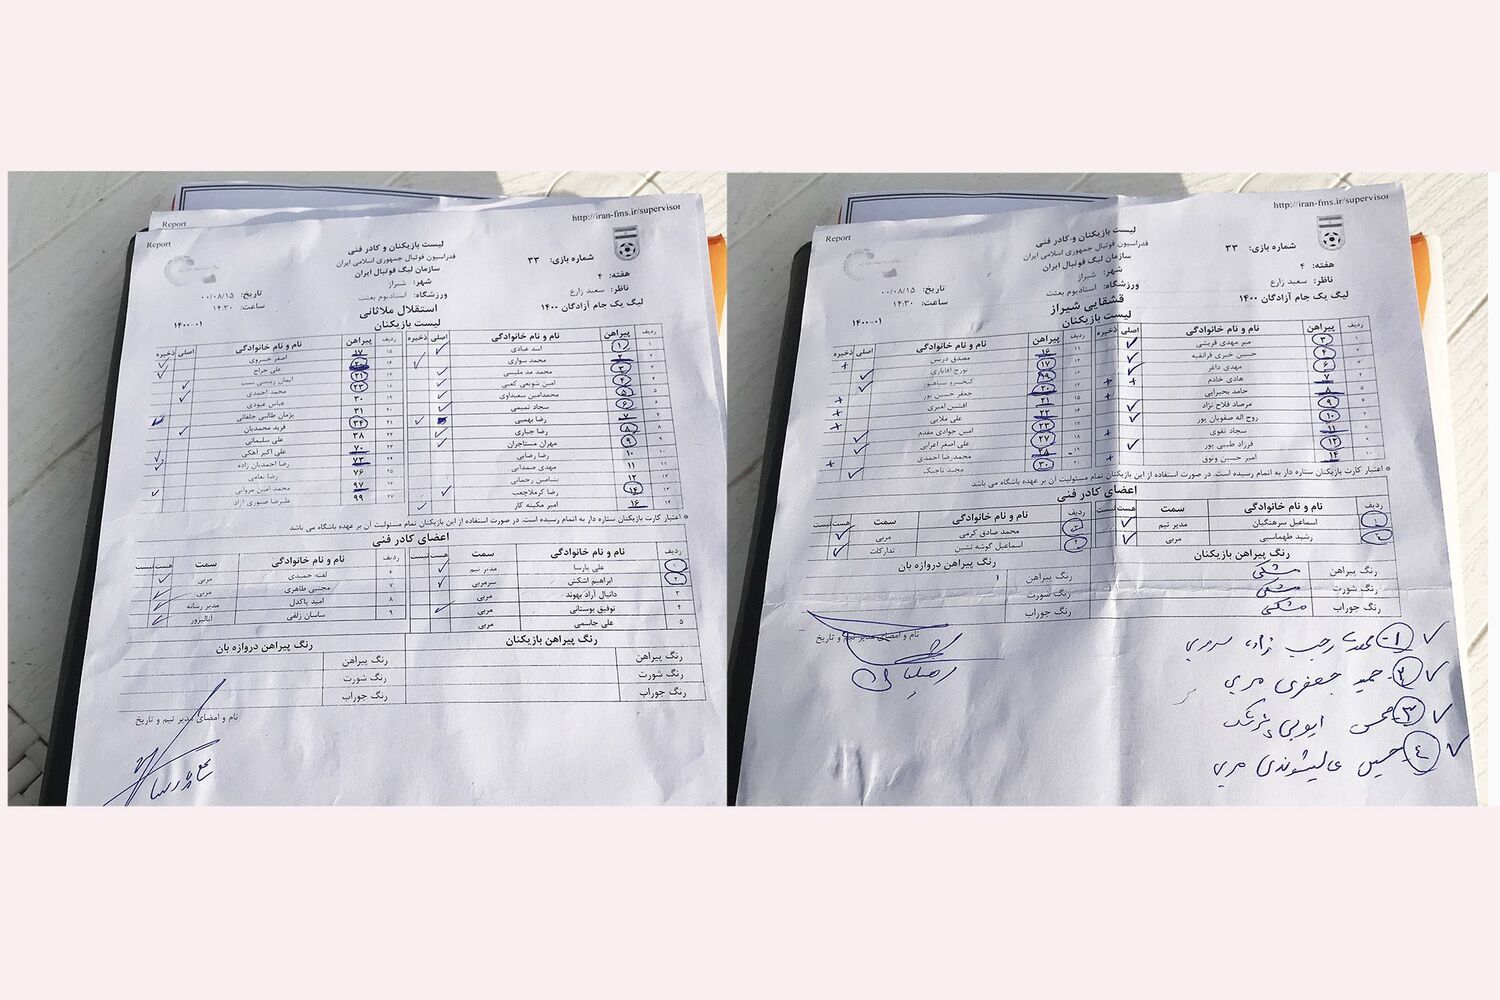 Report
Report
http://iran-fms.ir/supervisor
لیست بازیکنان و کادر فنی
فدراسیون فوتبال جمهوری اسلامی ایران
سازمان لیگ فوتبال ایران
شماره بازی: ۳۳
هفته: ۴
شهر: شیراز
ناظر: سعید زارع
ورزشگاه: استادیوم بعثت
تاریخ: ۰۰/۰۸/۱۵
ساعت: ۱۴:۳۰
لیگ یک جام آزادگان ۱۴۰۰
استقلال ملاثانی
۱۴۰۰-۰۱
لیست بازیکنان
ردیف پیراهن نام و نام خانوادگی اصلی ذخیره
۱ ۱ اسد عبادی
۲ ۲ محمد سواری
۳ ۳ محمد مد ملیسی
۴ ۴ امین شویعی کعبی
۵ ۵ محمدامین سعیداوی
۶ ۶ سجاد تمیمی
۷ ۷ رضا بهمیی
۸ ۸ رضا جباری
۹ ۹ مهران مستاجران
۱۰ ۱۰ رضا رضایی
۱۱ ۱۱ مهدی صمدایی
۱۲ ۱۲ بنیامین رحمانی
۱۳ ۱۴ رضا کرملاچعب
۱۴ ۱۶ امیر مکینه کار
ردیف پیراهن نام و نام خانوادگی اصلی ذخیره
۱۵ ۱۷ اصغر خسروی
۱۶ ۲۰ علی خراج
۱۷ ۲۱ ایمان رمیسی نسب
۱۸ ۲۳ محمد احمدی
۱۹ ۳۰ عباس عبودی
۲۰ ۳۱ پژمان طالبی خلفائی
۲۱ ۳۴ فرید محمدیان
۲۲ ۳۸ علی سلیمانی
۲۳ ۷۰ علی اکبر آهکی
۲۴ ۷۳ رضا احمدیان زاده
۲۵ ۷۶ رضا نعامی
۲۶ ۹۷ محمد امین مروانی
۲۷ ۹۹ علیرضا صبوری آزاد
* اعتبار کارت بازیکنان ستاره دار به اتمام رسیده است. در صورت استفاده از این بازیکنان تمام مسئولیت آن بر عهده باشگاه می باشد
اعضای کادر فنی
ردیف نام و نام خانوادگی سمت هست نیست
۱ علی پارسا مدیر تیم
۲ ابراهیم اشکش سرمربی
۳ دانیال آزاد پهوند مربی
۴ توفیق بوستانی مربی
۵ علی جاسمی مربی
ردیف نام و نام خانوادگی سمت هست نیست
۶ لفته حمیدی مربی
۷ مجتبی طاهری مربی
۸ امید پاکدل مدیر رسانه
۹ ساسان زلفی آنالیزور
رنگ پیراهن بازیکنان
رنگ پیراهن دروازه بان
رنگ پیراهن رنگ پیراهن
رنگ شورت رنگ شورت
رنگ جوراب رنگ جوراب
نام و امضای مدیر تیم و تاریخ
Report
http://iran-fms.ir/supervisor
لیست بازیکنان و کادر فنی
فدراسیون فوتبال جمهوری اسلامی ایران
سازمان لیگ فوتبال ایران
شماره بازی: ۳۳
هفته: ۴
شهر: شیراز
ناظر: سعید زارع
ورزشگاه: استادیوم بعثت
تاریخ: ۰۰/۰۸/۱۵
ساعت: ۱۴:۳۰
لیگ یک جام آزادگان ۱۴۰۰
قشقایی شیراز
۱۴۰۰-۰۱
لیست بازیکنان
ردیف پیراهن نام و نام خانوادگی اصلی ذخیره
۱ ۳ میر مهدی قریشی
۲ ۴ حسن خیری قرانقیه
۳ ۶ مهدی داغر
۴ ۷ هادی خادم
۵ ۸ حامد بحیرایی
۶ ۹ مرصاد فلاح نژاد
۷ ۱۰ روح اله صفویان پور
۸ ۱۱ سجاد تقوی
۹ ۱۲ فرزاد طیبی پور
۱۰ ۱۴ امیر حسین وثوق
ردیف پیراهن نام و نام خانوادگی اصلی ذخیره
۱۱ ۱۶ مصدق دریس
۱۲ ۱۷ تورج آقاباری
۱۳ ۱۹ کیخسرو سیاهپور
۱۴ ۲۰ جعفر حسین پور
۱۵ ۲۱ افشین امیری
۱۶ ۲۲ علی ملایی
۱۷ ۲۳ امین جوادی مقدم
۱۸ ۲۷ علی اصغر اعرابی
۱۹ ۲۸ محمدرضا احمدی
۲۰ ۳۰ مجید تاجیک
* اعتبار کارت بازیکنان ستاره دار به اتمام رسیده است. در صورت استفاده از این بازیکنان تمام مسئولیت آن بر عهده باشگاه می باشد
اعضای کادر فنی
ردیف نام و نام خانوادگی سمت هست نیست
۱ اسماعیل سرهنگیان مدیر تیم
۲ رشید طهماسبی مربی
ردیف نام و نام خانوادگی سمت هست نیست
۳ محمد صادق کرمی مربی
۴ اسماعیل گوشه نشین تدارکات
رنگ پیراهن بازیکنان
رنگ پیراهن دروازه بان
رنگ پیراهن مشکی رنگ پیراهن
رنگ شورت مشکی رنگ شورت
رنگ جوراب مشکی رنگ جوراب
نام و امضای مدیر تیم و تاریخ
۱- رجب زاده سرمربی
۲- حمید جعفری مربی
۳- محسن ایوبی پزشک
۴- حسین عالیشوندی مربی